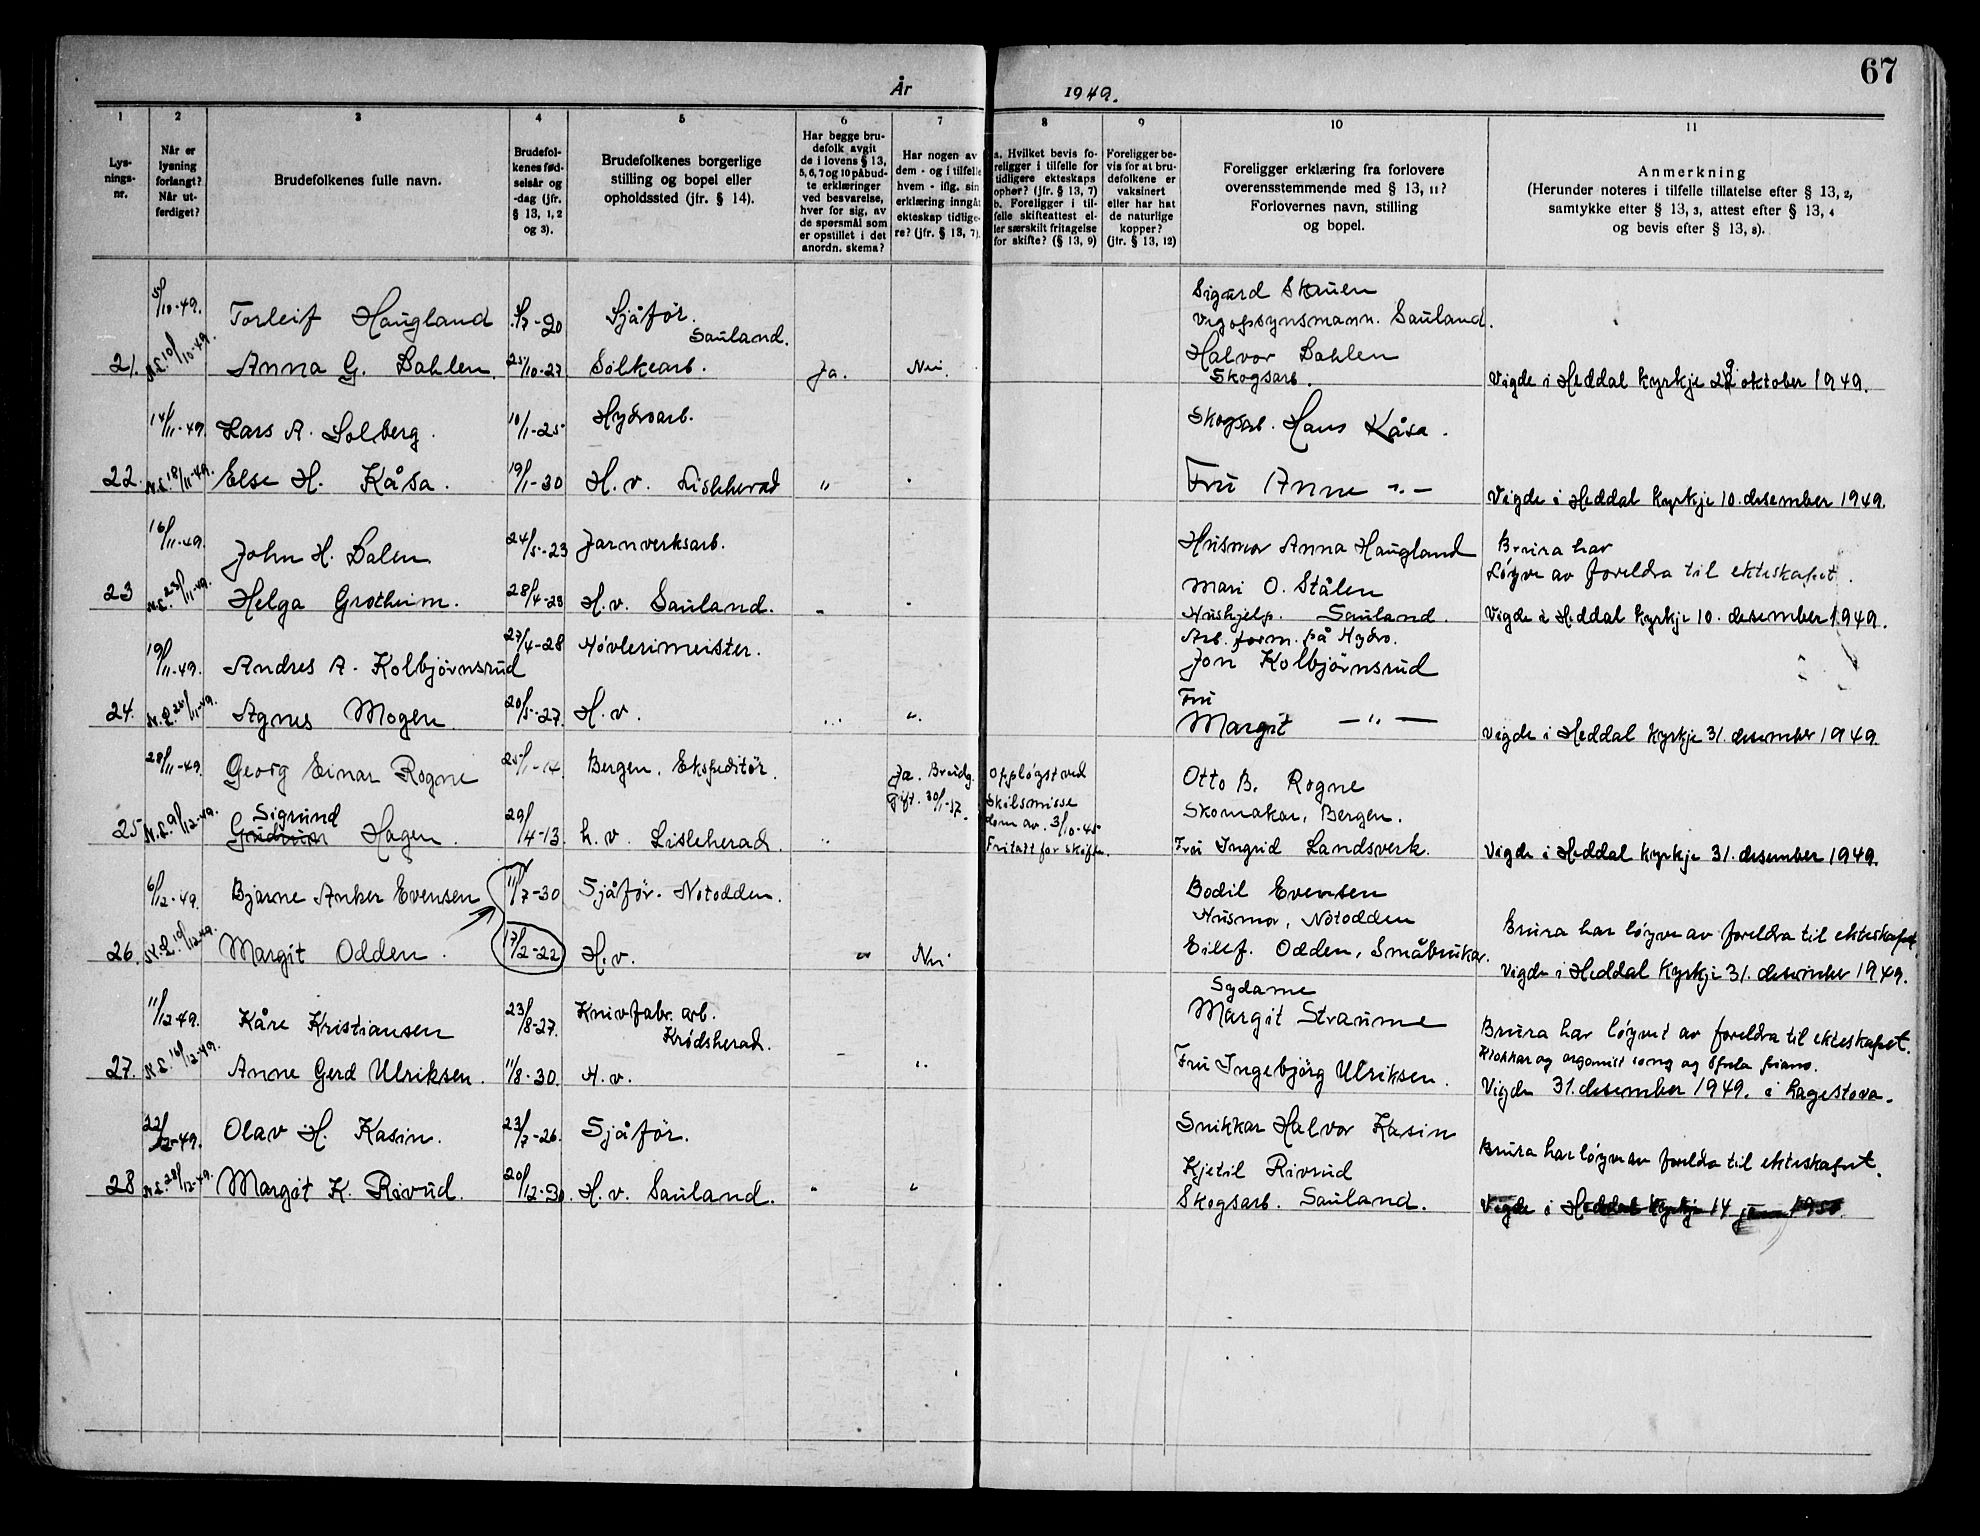 67
År 1949.
1 2 3 4 5 6 7 8 9 10 11
Lys-
nings-
nr.
Når er
lysning
forlangt?
Når ut-
ferdiget?
Brudefolkenes fulle navn.
Brudefol-
kenes fød-
selsår og
-dag (jfr.
§ 13, 1, 2
og 3).
Brudefolkenes borgerlige
stilling og bopel eller
opholdssted (jfr. § 14).
Har begge bru-
defolk avgit
de i lovens § 13,
5, 6, 7 og 10 påbud-
te erklæringer
ved besvarelse,
hver for sig, av
de spørsmål som
er opstillet i det
anordn. skema?
Har nogen av
dem - og i tilfelle
hvem - iflg. sin
erklæring inngåt
ekteskap tidlige-
re? (jfr. § 13, 7).
a. Hvilket bevis fo-
religger i tilfelle for
tidligere ekteskaps
ophør? (jfr. § 13, 7)
b. Foreligger i til-
felle skifteattest el-
ler særskilt fritagelse
for skifte? (§ 13, 9)
Foreligger be-
vis for at bru-
defolkene er
vaksinert
eller har hat
de naturlige
kopper?
(jfr. § 13, 12)
Foreligger erklæring fra forlovere
overensstemmende med § 13, 11?
Forlovernes navn, stilling
og bopel.
Anmerkning
(Herunder noteres i tilfelle tillatelse efter § 13, 2,
samtykke efter § 13, 3, attest efter § 13, 4
og bevis efter § 13, 8).
5/10-49. Torleif Haugland 5/7-20 Sjåfør. Sauland. Sigurd Skauen
Vegopsynsmann. Sauland.
21. N.L. 10/10-49. Anna G. Dahlen. 25/10-27 Silkearb. Ja. Nei. Halvor Dahlen
Skogsarb. Vigde i Heddal kyrkje 29 oktober 1949.
14/11-49 Lars A. Solberg. 10/1-25 Hydroarb. Skogsarb. Hans Kåsa.
22. N.L. 18/11-49. Else H. Kåsa. 19/1-30 H. v. Lisleherad " " Fru Anne -"- Vigde i Heddal kyrkje 10. desember 1949.
16/11-49. John H. Dalen 24/5-23 Jarnverksarb. Husmor Anna Haugland Brura har
løyve av foreldra til ekteskapet.
23 N.L. 23/11-49. Helga Grotheim. 28/4-28 H. v. Sauland. " " Mari O. Stålen
Hushjelp. Sauland. Vigde i Heddal kyrkje 10. desember 1949.
19/11-49. Andres A. Kolbjørnsrud 27/4-28 Høvlerimeister. Arb. form. på Hydro.
Jon Kolbjørnsrud
24. N.L. 25/11-49. Agnes Mogen 20/5-27. H. v. " " Fru
Margit -"- Vigde i Heddal kyrkje 31. desember 1949
28/11-49. Georg Einar Rogne 25/1-14 Bergen. Ekspeditør. Ja. Brudg.
gift. 30/1-37. Oppløyst ved
skilsmisse
dom av. 3/10-45
Fritatt for skifte. Otto B. Rogne
Skomakar, Bergen.
25 N.L. 9/12-49. Sigrund
Gudrun Hagen. 29/4-13. h. v. Lisleherad. " Fru Ingrid Landsverk. Vigde i Heddal kyrkje 31. desember 1949.
6/12-49. Bjarne Anker Evensen 11/7-30 Sjåfør. Notodden. Bodil Evensen
Husmor, Notodden
26. N.L. 10/12-49. Margit Odden. 17/2-22 H. v. " Nei. Eilef. Odden, Småbrukar. Brura har løyve av foreldra til ekteskapet.
Vigde i Heddal kyrkje 31. desember 1949.
11/12-49. Kåre Kristiansen 23/8-27. Knivfabr. arb.
Krødsherad. Sydame
Margit Straume
27. N.L. 16/12-49. Anne Gerd Ulriksen. 11/8-30. H. v. " Fru Ingebjørg Ulriksen. Brura har løyvet av foreldra til ekteskapet.
Klokkar og organist song og spela piano.
Vigde 31. desember 1949. i Lagestova.
22/12-49. Olav H. Kasin. 23/7-26. Sjåfør. Snikkar Halvor Kasin
28 N.L. 28/12-49. Margit K. Rivrud. 20/12-30. H. v. Sauland. " " Kjetil Rivrud
Skogsarb. Sauland. Brura har løyve av foreldra til ekteskapet.
Vigde i Heddal kyrkje 14 1950.